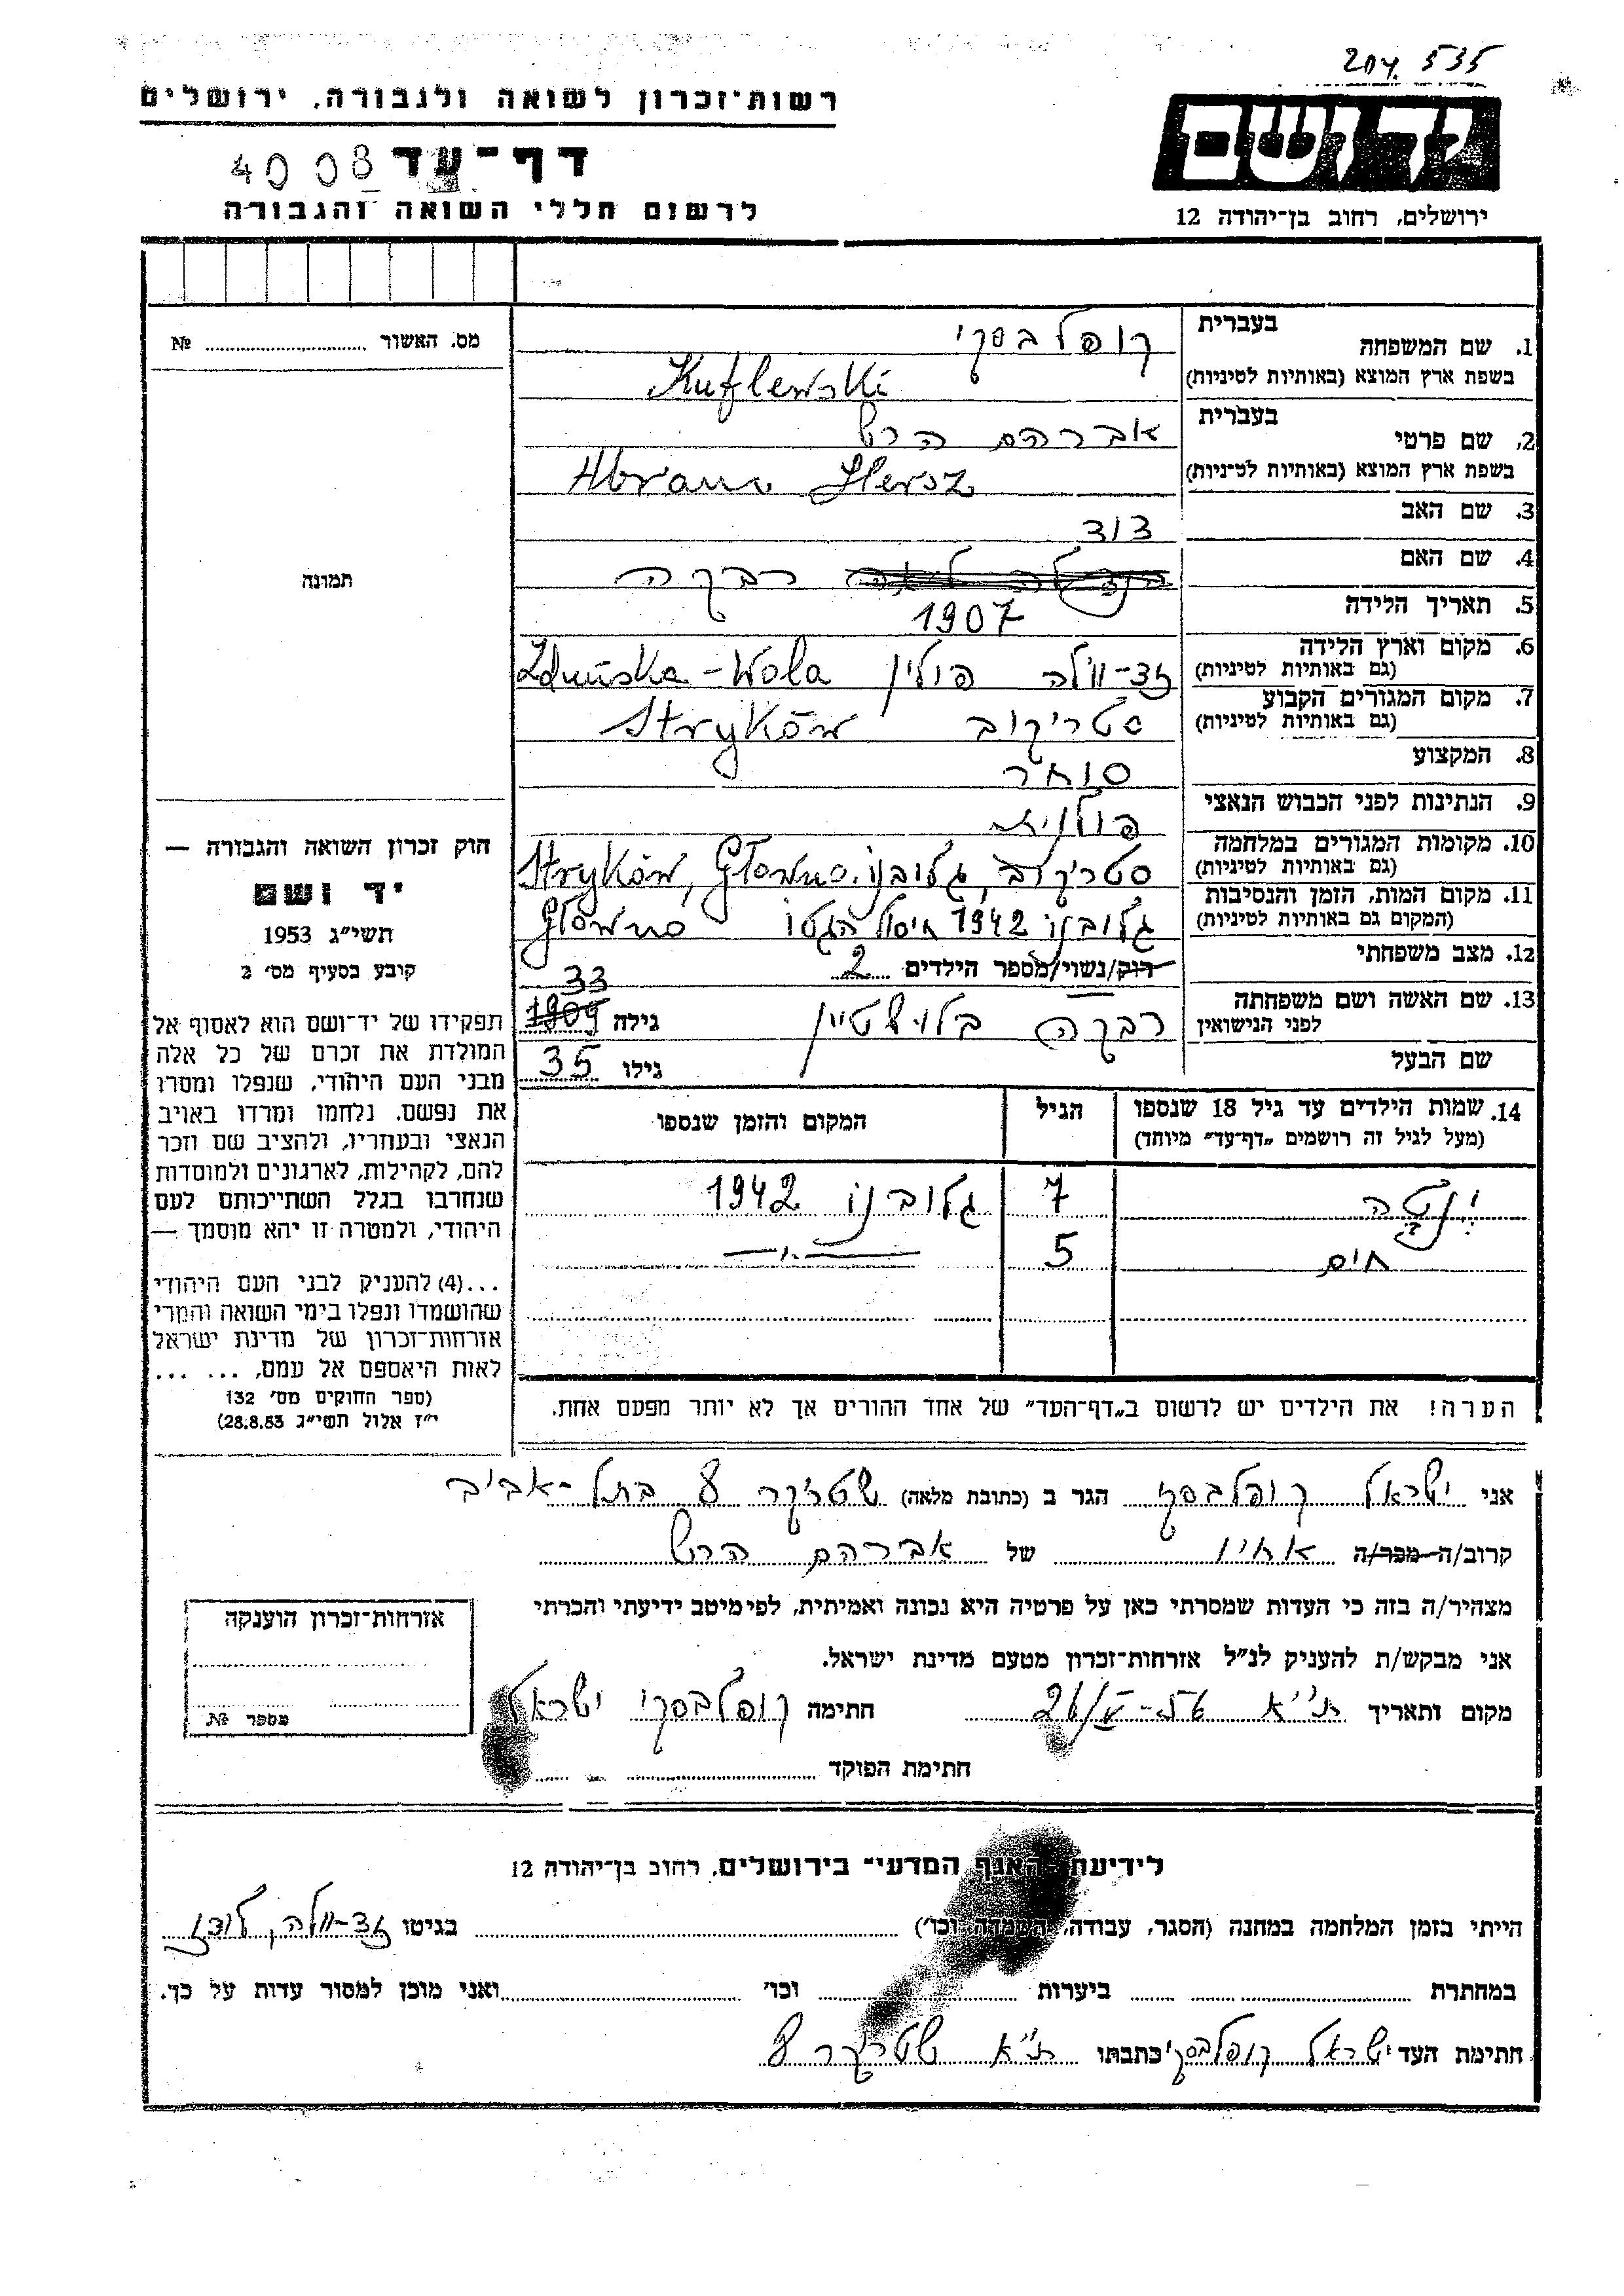 204 535
רשות־זכרון לשואה ולגבורה, ירושלים
יד ושם
דף־עד 4008
לרשום חללי השואה והגבורה
ירושלים, רחוב בן־יהודה 12
מס. האשור № 
בעברית
1. שם המשפחה קופלבסקי
בשפת ארץ המוצא (באותיות לטיניות) Kuflewski
בעברית
2. שם פרטי אברהם הרש
בשפת ארץ המוצא (באותיות לטיניות) Abram Hersz
3. שם האב דוד
4. שם האם רבקה
5. תאריך הלידה 1907
6. מקום וארץ הלידה (גם באותיות לטיניות) זד-וולה פולין Zduńska-Wola
7. מקום המגורים הקבוע (גם באותיות לטיניות) סטריקוב Stryków
8. המקצוע סוחר
9. הנתינות לפני הכבוש הנאצי פולנית
10. מקומות המגורים במלחמה (גם באותיות לטיניות) סטריקוב, גלובנו. Stryków, Głowno
11. מקום המות, הזמן והנסיבות (המקום גם באותיות לטיניות) גלובנו 1942 חיסול הגטו Głowno
12. מצב משפחתי רוק/נשוי/מספר הילדים 2
13. שם האשה ושם משפחתה לפני הנישואין רבקה בלוישטיין גילה 1909 33
שם הבעל גילו 35
14. שמות הילדים עד גיל 18 שנספו הגיל המקום והזמן שנספו
(מעל לגיל זה רושמים "דף־עד" מיוחד)
ינטה 7 גלובנו 1942
חיים 5 —"—
הערה! את הילדים יש לרשום ב"דף־העד" של אחד ההורים אך לא יותר מפעם אחת.
תמונה
חוק זכרון השואה והגבורה —
יד ושם
תשי"ג 1953
קובע בסעיף מס' 2
תפקידו של יד־ושם הוא לאסוף אל
המולדת את זכרם של כל אלה
מבני העם היהודי, שנפלו ומסרו
את נפשם, נלחמו ומרדו באויב
הנאצי ובעוזריו, ולהציב שם וזכר
להם, לקהילות, לארגונים ולמוסדות
שנחרבו בגלל השתייכותם לעם
היהודי, ולמטרה זו יהא מוסמך —
...(4) להעניק לבני העם היהודי
שהושמדו ונפלו בימי השואה והמרי
אזרחות־זכרון של מדינת ישראל
לאות היאספם אל עמם, ... ...
(ספר החוקים מס' 132
י"ז אלול תשי"ג 28.8.53)
אני ישראל קופלבסקי הגר ב (כתובת מלאה) שטריקר 8 בתל-אביב
קרוב/ה מכר/ה אחיו של אברהם הרש
מצהיר/ה בזה כי העדות שמסרתי כאן על פרטיה היא נכונה ואמיתית, לפי מיטב ידיעתי והכרתי
אני מבקש/ת להעניק לנ"ל אזרחות־זכרון מטעם מדינת ישראל.
מקום ותאריך ת"א 26/V-56 חתימה קופלבסקי ישראל
חתימת הפוקד
אזרחות־זכרון הוענקה
מספר №
לידיעת האגף המדעי־ בירושלים, רחוב בן־יהודה 12
הייתי בזמן המלחמה במחנה (הסגר, עבודה, השמדה וכו') בגיטו זד-וולה, לודז
במחתרת ביערות וכו' ואני מוכן למסור עדות על כך.
חתימת העד ישראל קופלבסקי כתבתו ת"א שטריקר 8